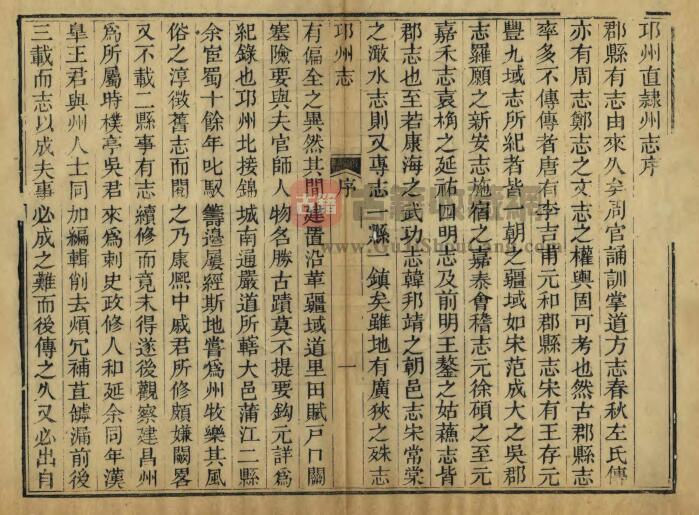 邛州直隸州志序
郡縣有志由來久矣周官誦訓掌道方志春秋左氏傳
亦有周志鄭志之文志之權輿固可考也然古郡縣志
率多不傳傳者唐有李吉甫元和郡縣志宋有王存元
豐九域志所紀者皆一朝之疆域如宋范成大之吳郡
志羅願之新安志施宿之嘉泰會稽志元徐碩之至元
嘉禾志袁桷之延祐四明志及前明王鏊之姑蘓志皆
郡志也至若康海之武功志韓邦靖之朝邑志宋常棠
之澉水志則又專志一縣一鎮矣雖地有廣狹之殊志
邛州志
序
一
有偏全之異然其間建置沿革疆域道里田賦戸口關
塞險要與夫官師人物名勝古蹟莫不提要鈎元詳爲
紀錄也邛州北接錦城南通嚴道所轄大邑蒲江二縣
余宦蜀十餘年叱馭籌邊屢經斯地嘗爲州牧樂其風
俗之淳徵舊志而閱之乃康熙中戚君所修頗嫌闕畧
又不載二縣事有志續修而竟未得遂後觀察建昌州
爲所屬時樸亭吳君來爲刺史政修人和延余同年漢
皐王君與州人士同加編輯削去煩冗補苴罅漏前後
三載而志以成夫事必成之難而後傳之久又必出自
古籍
古籍收藏網
www.GuJiShouCang.com